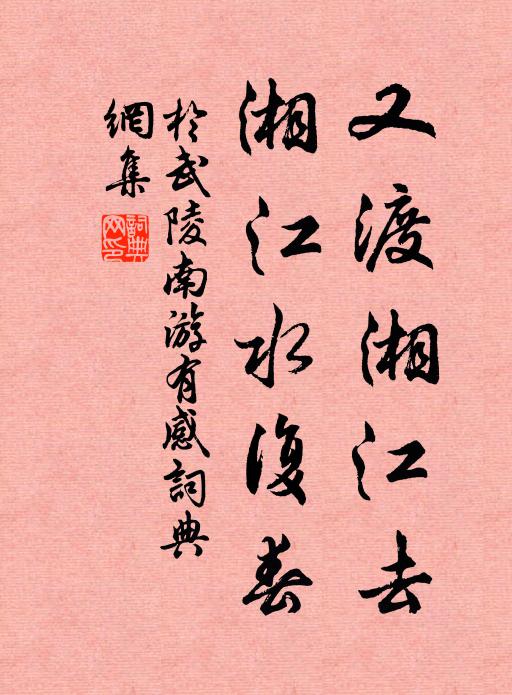 又渡湘江去
湘江水復春
於武陵南游有感詞典
網集
詞典網印